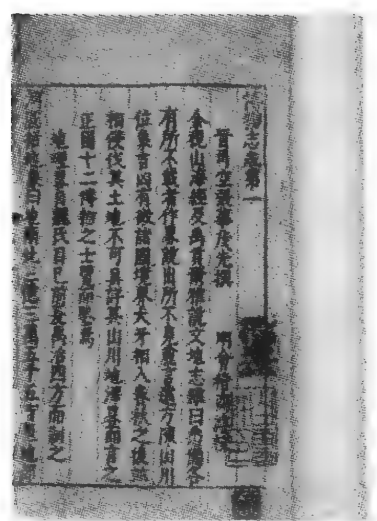 物志卷第一
晉司空張華茂先撰 明會稽
余視山海經及禹貢爾雅說文地志雖曰悉備各
有所不載者作畧說出所不見粗言遠方陳山川
位象吉凶有徵諸國境界犬牙相入春秋之後並
相侵伐其土地不可具詳其山川地澤畧而言之
正國十二博物之士覽而鑒焉
地理畧自魏氏目已前夏禹治四方而制之
括地象曰地南北三億三萬五千五百里地